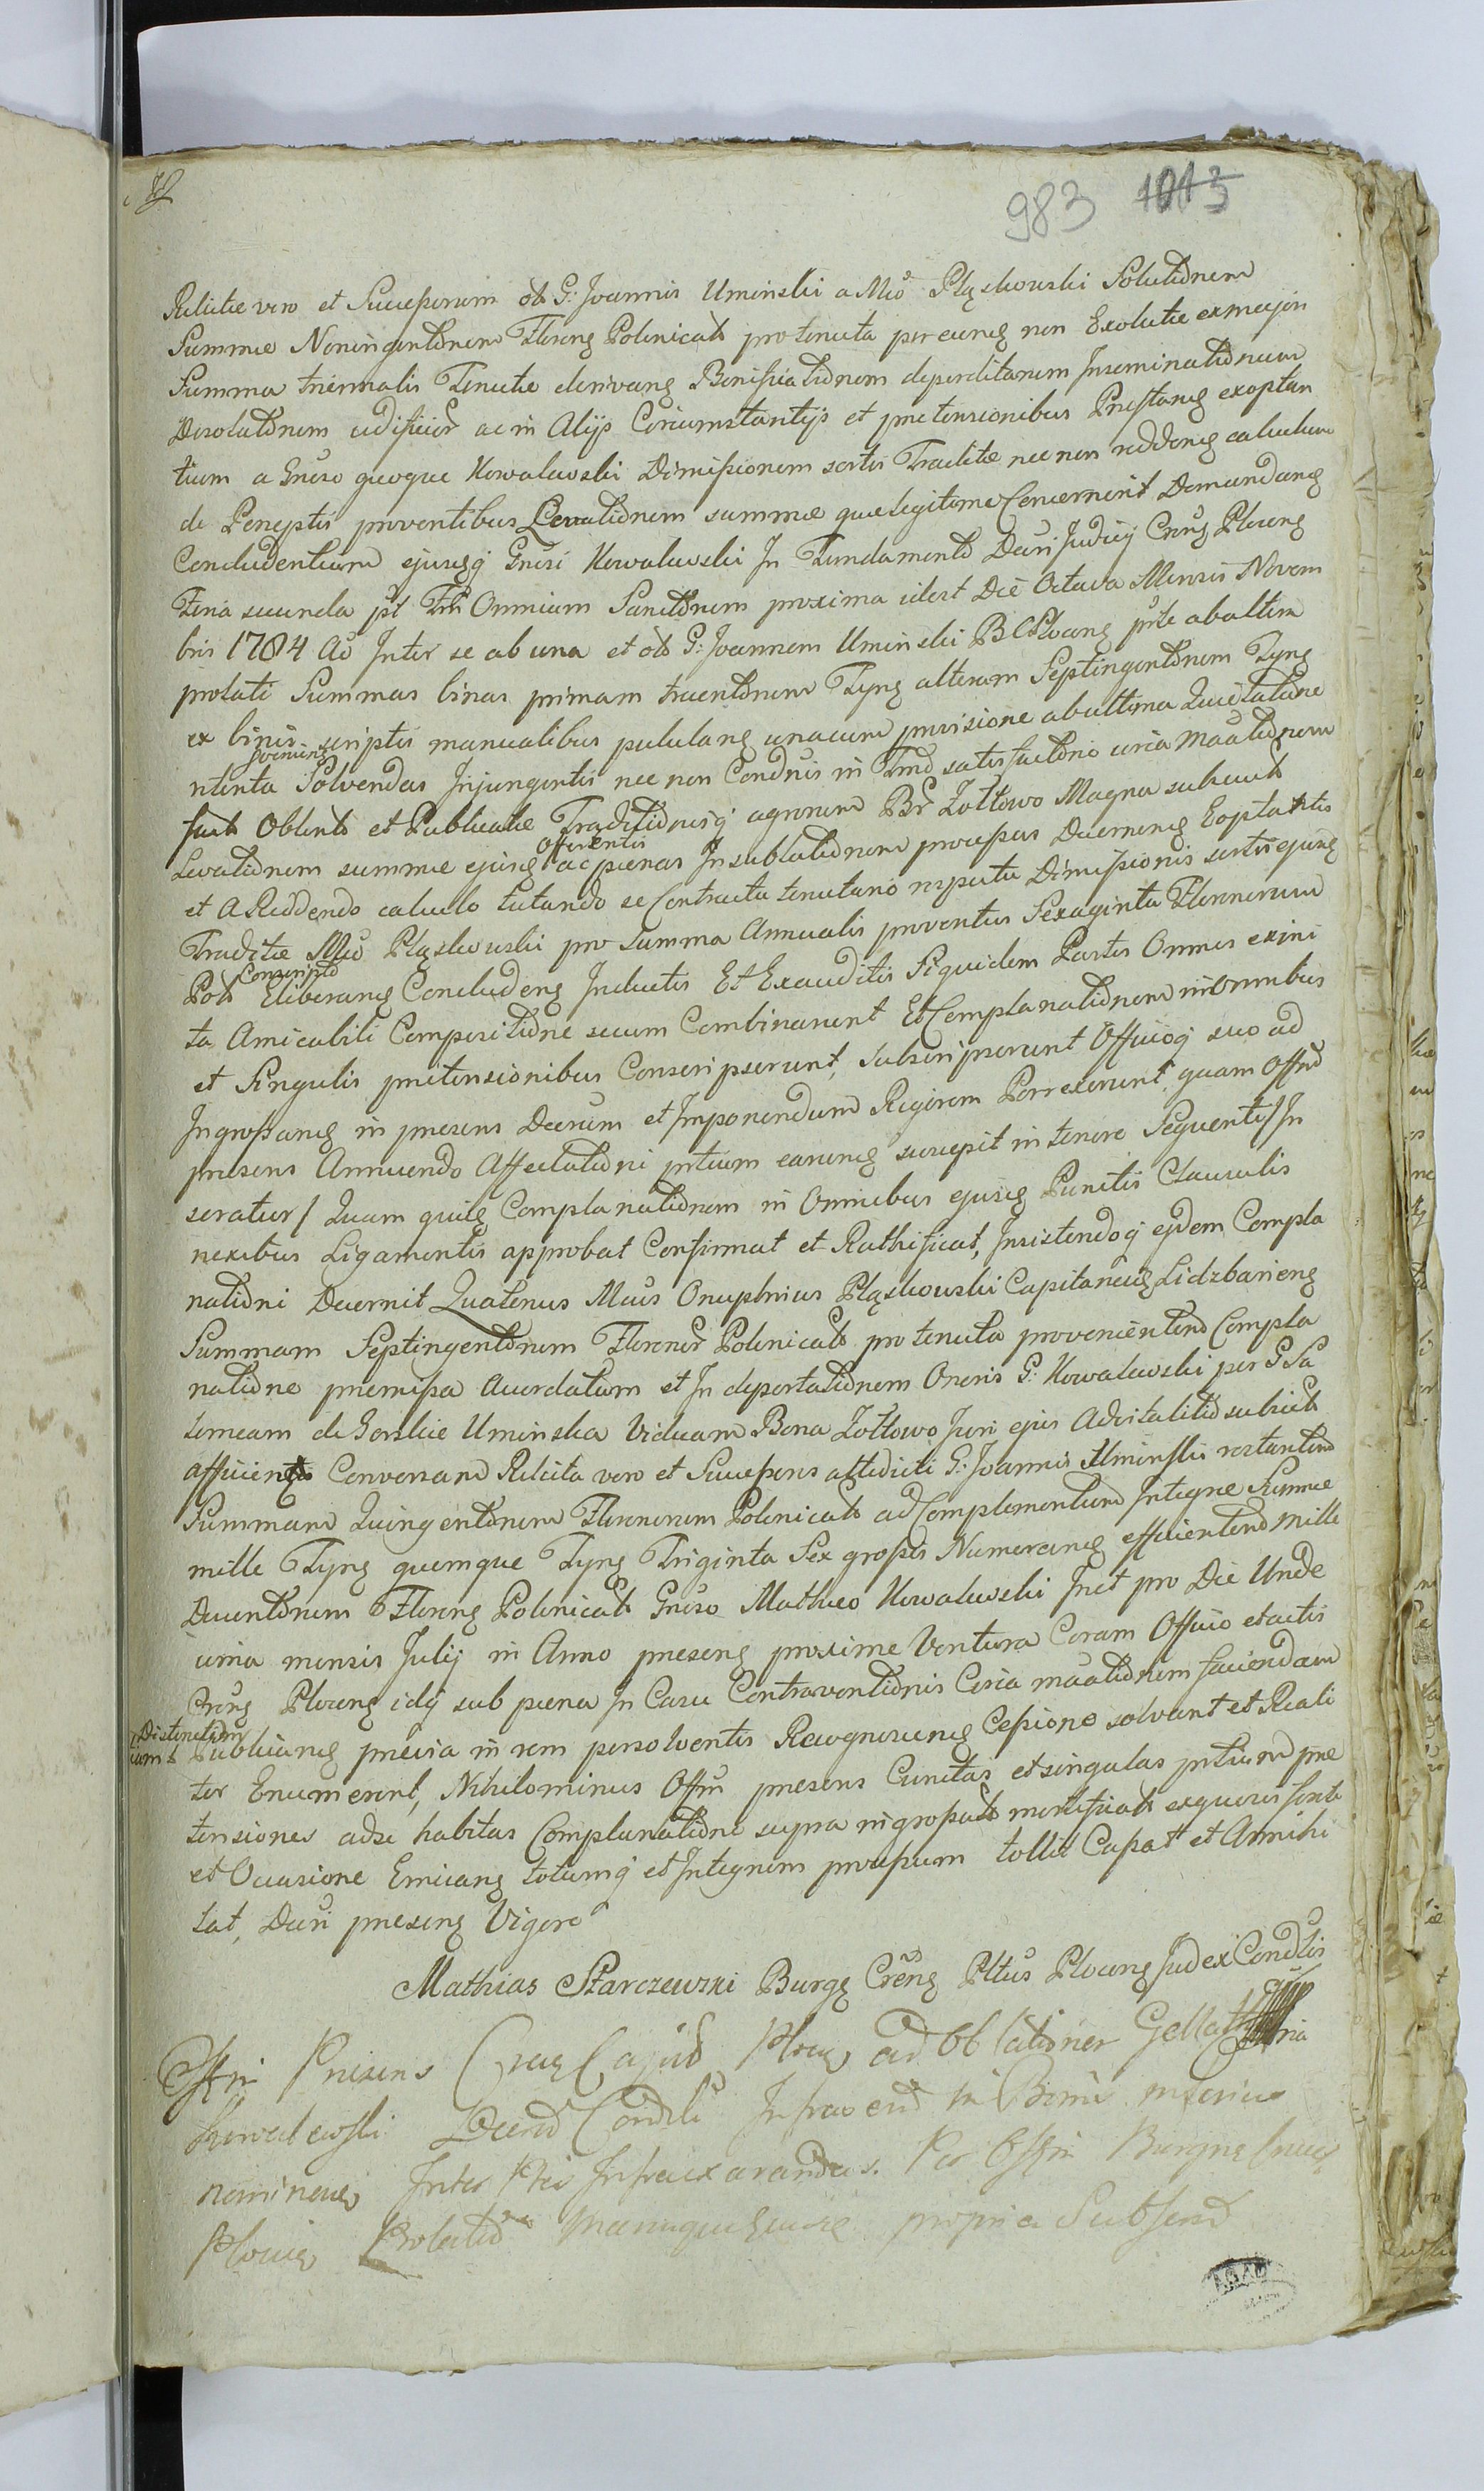 983 1013
Relictæ vero et Successorum olt G: Joannis Uminski a Mco Pląskowski Solutionem
Summæ Noningentorum Floreng Polonicalt pro tenuta per eung non Exolutæ ex majori
Summa triennalis Tenutæ derivang Bonificationem deperditarum Inseminationum
Desolationem ædificior ac in Alijs Circumstantijs et prætensionibus Præstang exoptan
tium a Gnoso quoque Kowalewski Dimissionem sortis Traditæ nec non reddeng calculum
de Perceptis proventibus Levationem summæ quæ legitime Concernerit Demandang
Concludentium ejusqꝫ Gnosi Kowalewski In Fundamento Decri Judicij Creng Ploceng
Feria secunda pt Ftm Omnium Sanctorum proxima idest Die Octava Mensis Novem
bris 1784 Ao Inter se ab una et olt G: Joannem Uminski BCPloceng prte ab altera
prolati Summas binas primam trecentorum Tyng alteram Septingentorum Tyng
ex binis scriptis manualibus pululang unacum provisione ab ultima Quietatione
ntenta Solvendas Injungentis nec non Condnis in Tmo satisfactorio circa maationem
fact Oblent et Publicatæ Traditionisqꝫ agrorum Br Zołtowo Magna subsecut
Levationem summæ ejusg Offerentis ac pænas In sublationem processus Decerneng Exoptantis
et A Reddendo calculo tutando se Contractu tenutario respectu Dimissionis sortis ejusg
Traditæ Mco Pląskowski pro summa Annualis proventus Sexaginta Florenorum
Polt Conscripto Eliberang Concludeng Inductis Et Exauditis Siquidem Partes Omnes exini
ta Amicabili Compositione secum Combinarunt Et Complanationem in omnibus
et Singulis prætensionibus Conscripserunt, subscripserunt Officioqꝫ suo ad
Ingrossang in præsens Decrum et Imponendum Rigorem Porrexerunt, quam Offm
præsens Annuendo Affectationi prtium earung suscepit in tenore Sequenti / In
seratur / Quam quidg Complanationem in Omnibus ejusg Punctis Clausulis
nexibus Ligamentis approbat Confirmat et Rathificat, Insistendoqꝫ ejdem Compla
nationi Decernit Quatenus Mcus Onuphrius Pląskowski Capitaneug Lidzbarieng
Summam Septingentorum Florenor Polonicalt pro tenuta provenientem Compla
natione præmissa accordatam et In deportationem Oneris G: Kowalewski per G Sa
lomeam de Gorskie Uminska Viduam Bona Zołtowo Juri ejus Advitalitio subject
afficient Conversam Relicta vero et Successores attedicti G: Joannis Uminski restantem
Summam Quingentorum Florenorum Polonicalt ad Complementum Integræ Summæ
mille Tyng quemque Tyng Triginta Sex grossis Numerang efficientem mille
Ducentorum Floreng Polonicalt Gnoso Matheo Kowalewski Inct pro Die Unde
cima mensis Julij in Anno præseng proxime Ventura Coram Officio et actis
Creng Ploceng idqꝫ sub pæna In Casu Contraventionis Circa maationem faciendam
Publicang prævia in rem persolventis Recognoscung Cessione solvant et Reali
ter Enumerent, Nihilominus Offm præsens Cunctas et singulas prtium præ
tensiones ad se habitas Complanatione supra ingrossat mortificat exquovis fonte
et Occasione Emicang totumqꝫ et Integrum processum tollit Cassat et Annihi
lat, Decri præseng Vigore
Mathias Starczewski Burgg Creng Pltus Ploceng Judex Condlis
Offm Præsens Ploceng ad Oblationem
Kowalewski Decrm Condle in
Inter Ptes Infra exarandas. Per Offm Burgræ
Ploceng Prolato Manuque propria Subsc